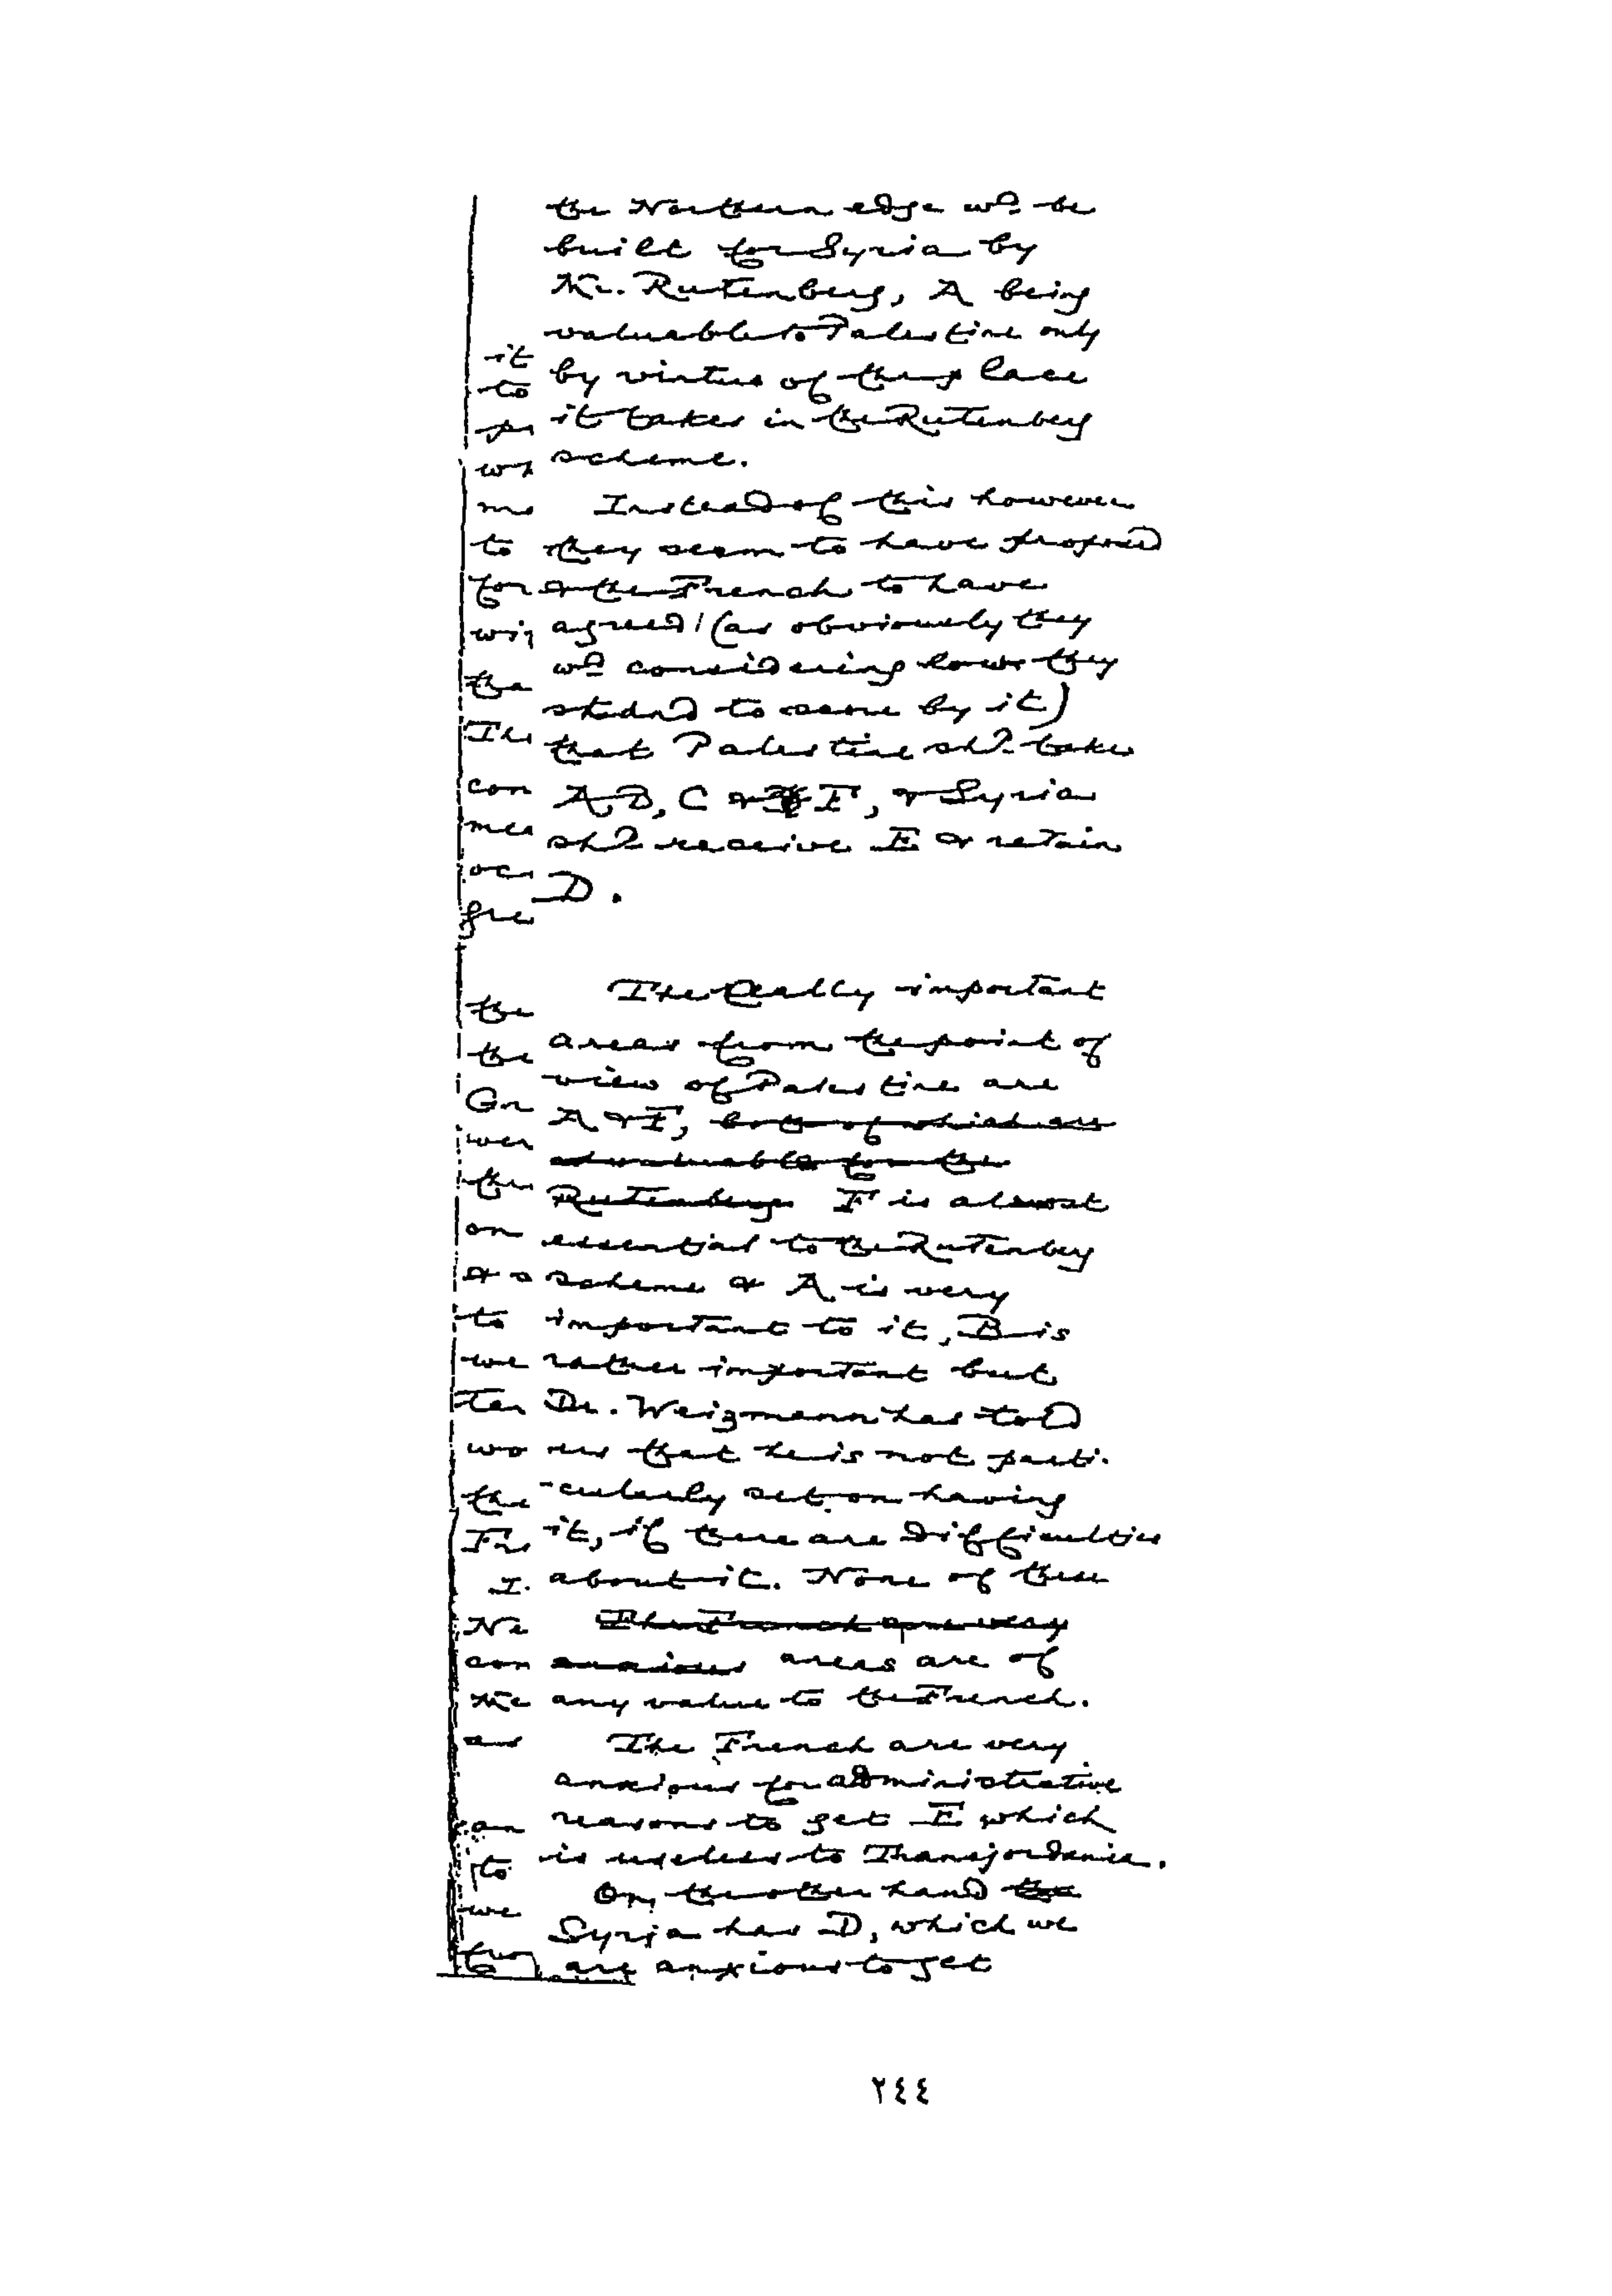 the Northern edge wd. be
built for Syria by
Mr. Rutenberg, A being
valuable to Palestine only
by virtue of the place
it takes in the Rutenberg
scheme.
Instead of this however
they seem to have proposed
& the French to have
agreed (as obviously they
wd. considering how they
stand to score by it)
that Palestine shd. take
A, B, C & F, & Syria
shd. receive E & retain
D.
The really important
areas from the point of
view of Palestine are
A & F, both of which are
as valuable for the
Rutenberg F is almost
essential to the Rutenberg
scheme & A is very
important to it, B is
rather important but
Dr. Weizmann has told
us that he is not parti-
-cularly set on having
it, if there are difficulties
about it. None of these
The French are very
anxious areas are of
any value to the French.
The French are very
anxious for administrative
reasons to get E which
is useless to Transjordania.
On the other hand the
Syria has D, which we
are anxious to get
it
to
me
to
for
the
con
mea
the
the
wer
on
to
we
wo
the
I.
Ne
con
an
to
we
٢٤٤